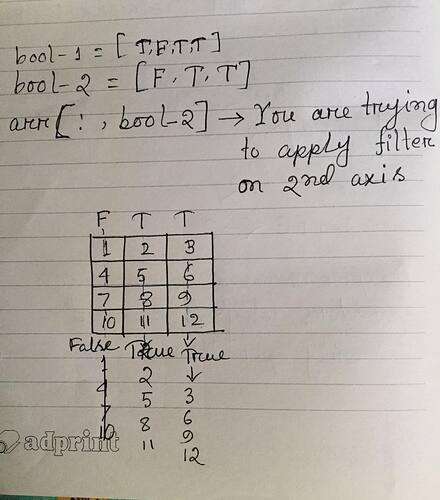 bool-1 = [T,F,T,T]
bool-2 = [F, T, T]
arr[:, bool-2] → You are trying
to apply filter
on 2nd axis
F T T
1 2 3
4 5 6
7 8 9
10 11 12
False True True
1 2 3
4 5 6
7 8 9
10 11 12
adprint